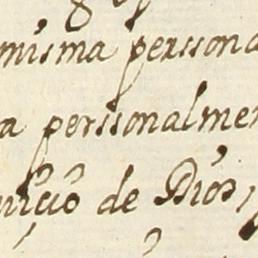 misma perssona
a perssonalmen
uicio de Dios,